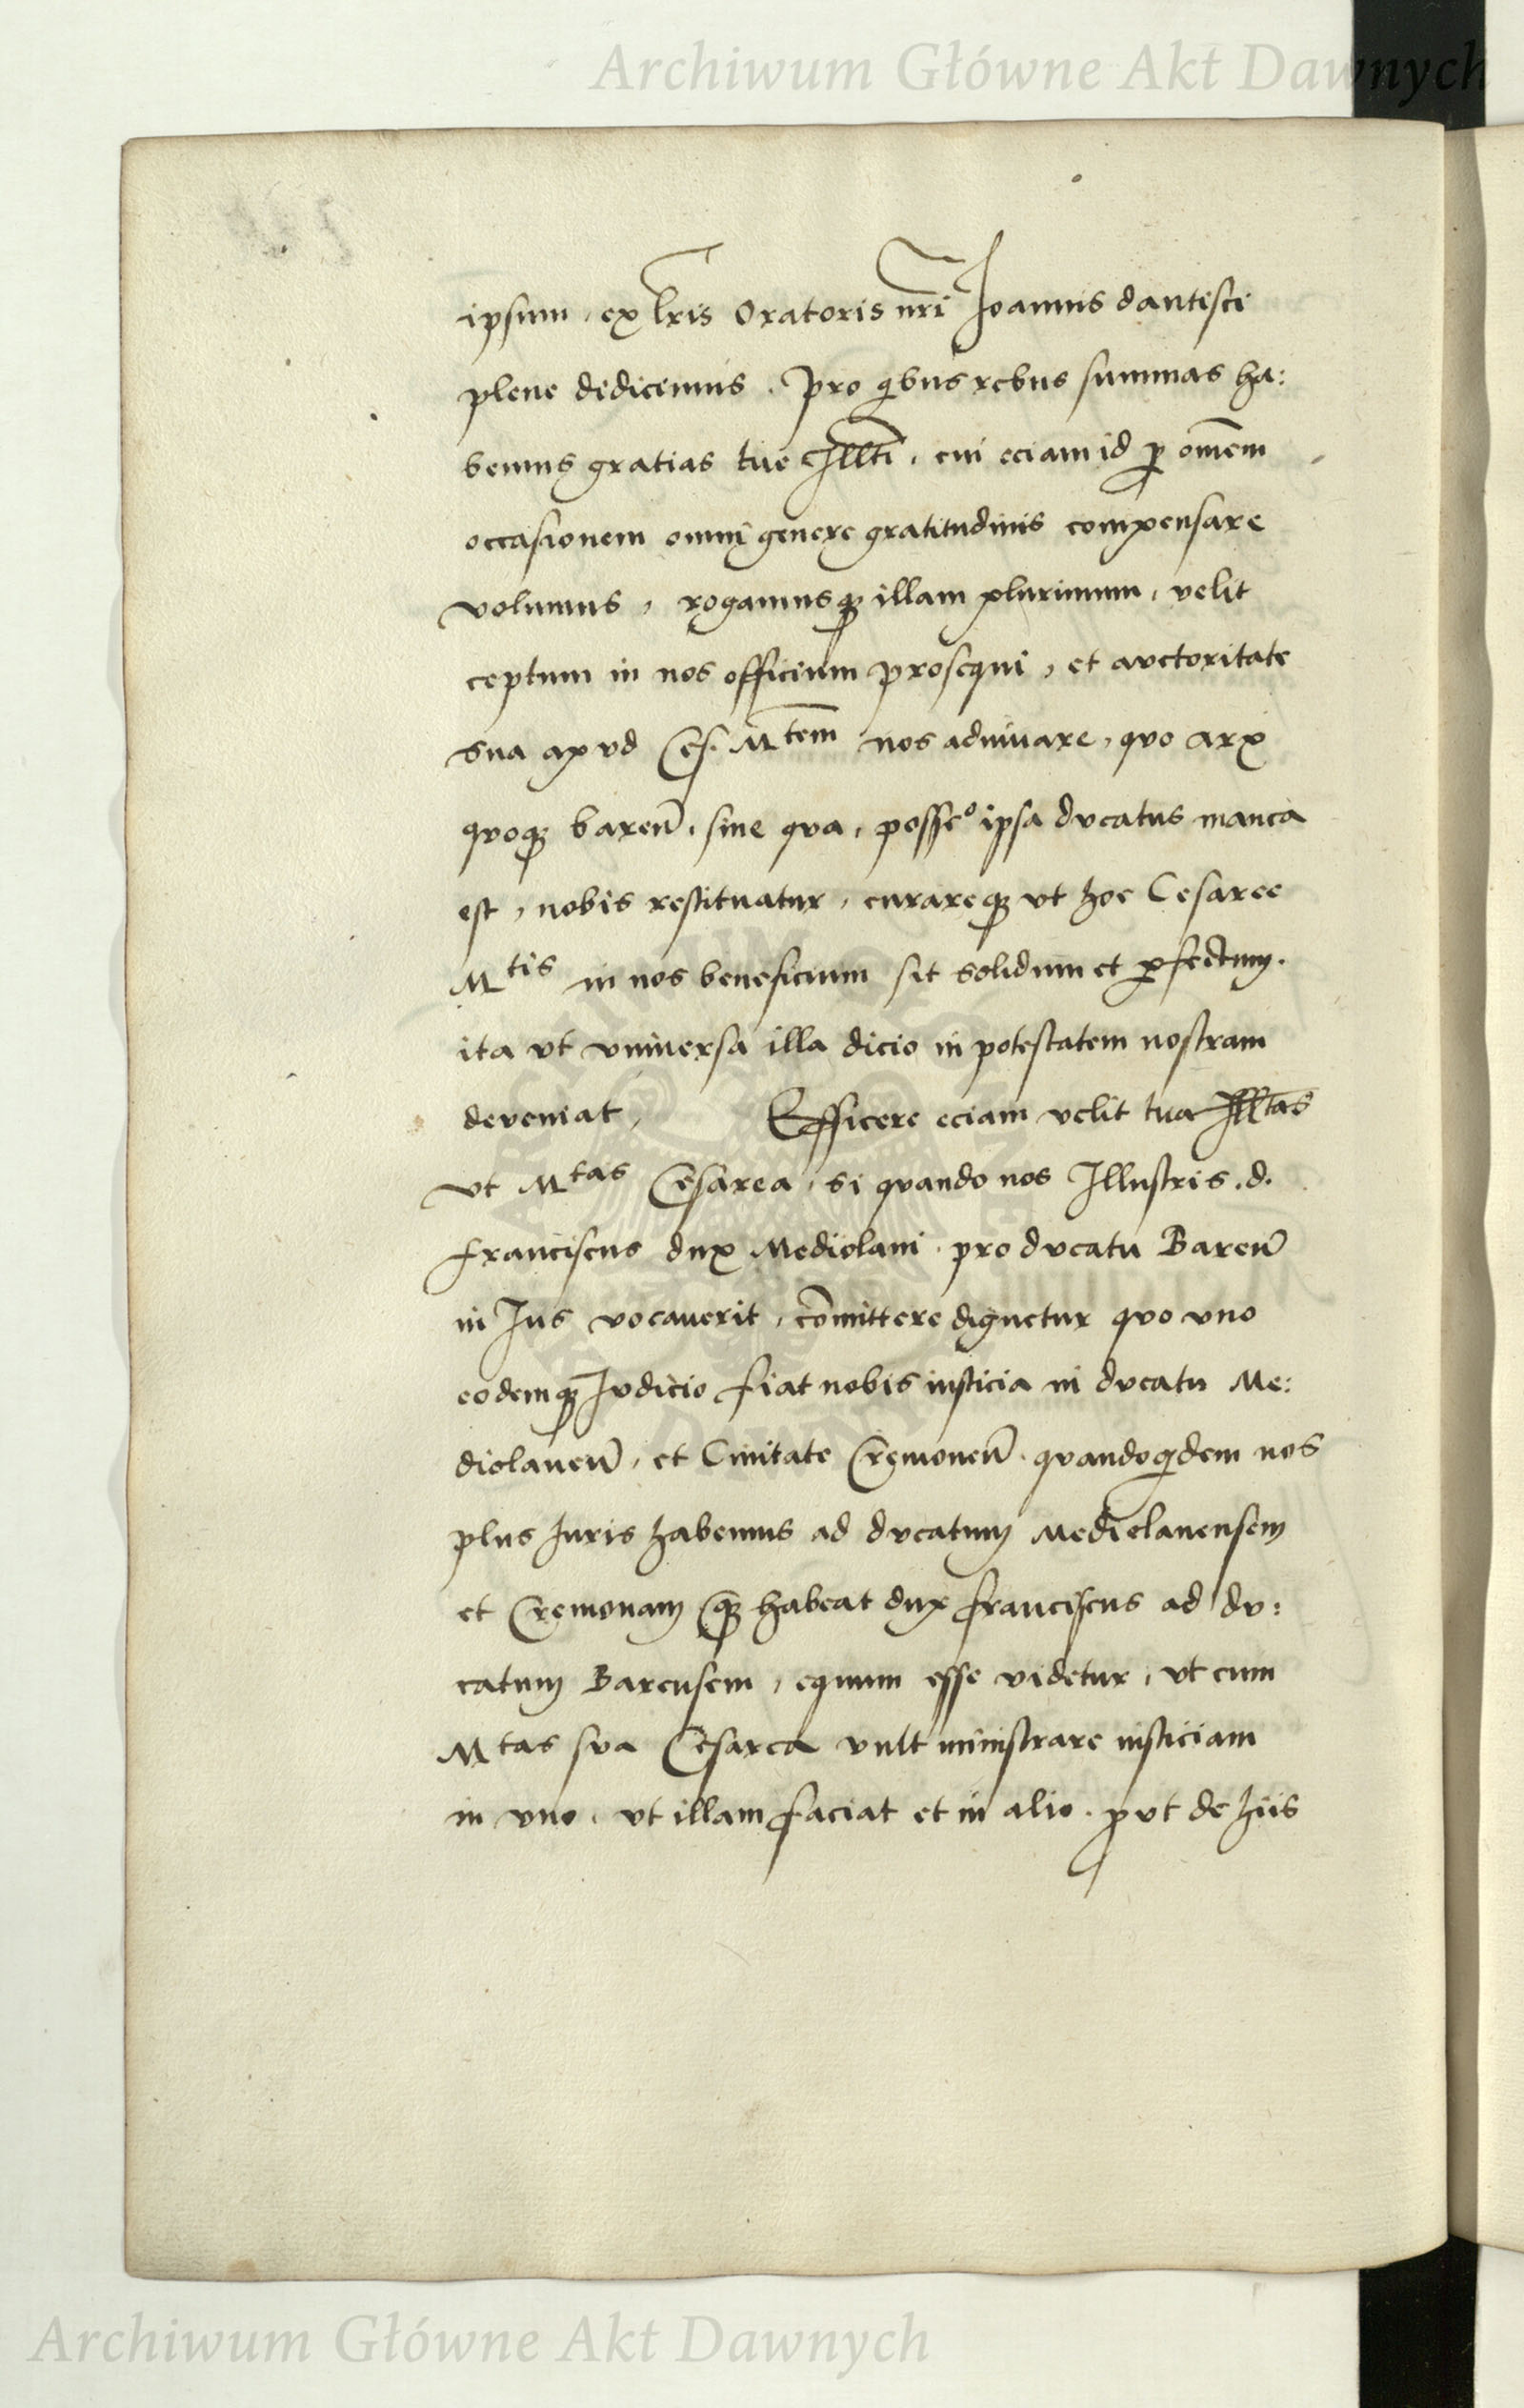 Archiwum Główne Akt Dawnych
ipsum, ex lris Oratoris nri Joannis dantisci
plene didicimus. Pro qibus rebus summas ha:
bemus gratias tue Illti, cui eciam id p omem
occasionem omni genere gratitudinis compensare
volumus, rogamusq illam plurimum, velit
ceptum in nos officium prosequi, et avctoritate
sua apvd Ces. Mtem nos adiuuare, qvo arx
qvoq baren, sine qva, possio ipsa dvcatus manca
est, nobis restitvatur, curareq vt hoc Cesaree
Mtis in nos beneficium sit solidum et pfectum.
ita vt vniuersa illa dicio in potestatem nostram
deveniat, Efficere eciam velit tua Illtas
vt Mtas Cesarea, si qvando nos Illustris. d.
franciscus dux Mediolani pro dvcatu Baren
in Jus vocauerit, comittere dignetur qvo vno
eodemq Jvdicio fiat nobis iusticia in dvcatu Me:
diolanen, et Ciuitate Cremonen. qvandoqidem nos
plus Juris habemus ad dvcatum Mediolanensem
et Cremonam q habeat dux franciscus ad dv:
catum Barensem, equum esse videtur, vt cum
Mtas sva Cesarea vult ministrare iusticiam
in vno, vt illam faciat et in alio. pvt de hiis
Archiwum Główne Akt Dawnych